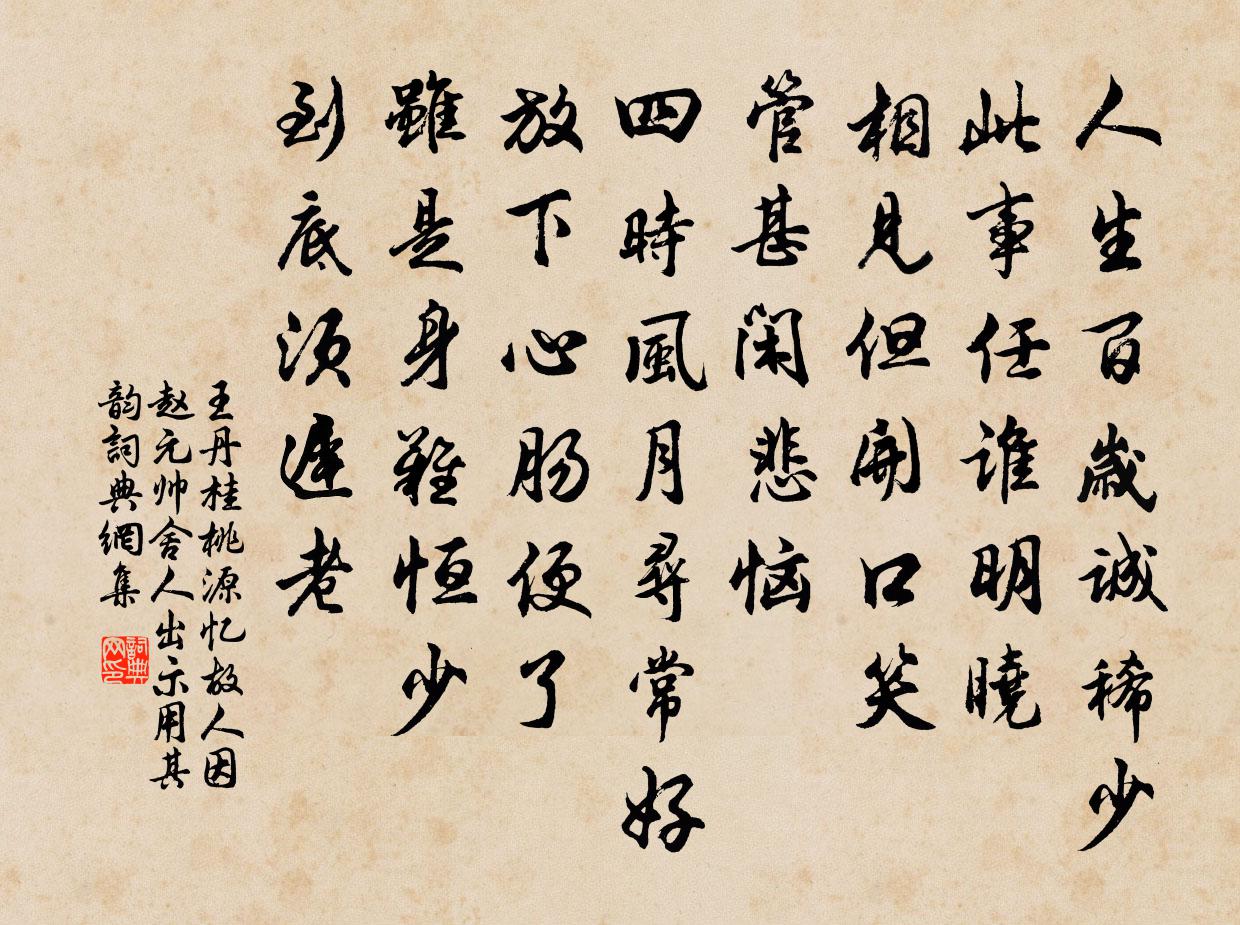 人生百歲誠稀少
此事任誰明曉
相見但開口笑
管甚閑悲惱
四時風月尋常好
放下心腸便了
雖是身難恒少
到底須遲老
王丹桂桃源忆故人因
赵元帅舍人出示用其
韵詞典網集
詞典网印